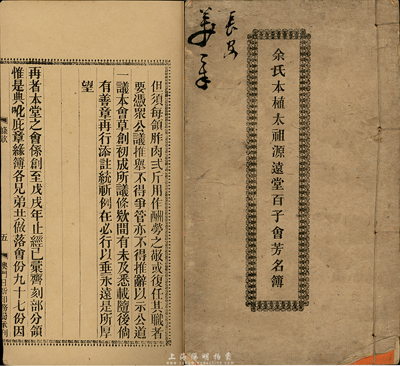 余氏本植太祖源遠堂百子會芳名簿
長君
但須每領胙肉弍斤用作酬勞之敬或復任其職者
要憑眾公議推舉不得爭管亦不得推辭以示公道
一議本會草創初成所議條欵間有未及悉載隨後倘
有善章再行添註統祈例在必行以垂永遠是所厚
望
再者本堂之會係創至戊戌年止經已彙齊刻部分領
惟是典𠳐庇章緣簿各兄弟丟做落會份九十七份因
條欵
五
上海陽明拍賣